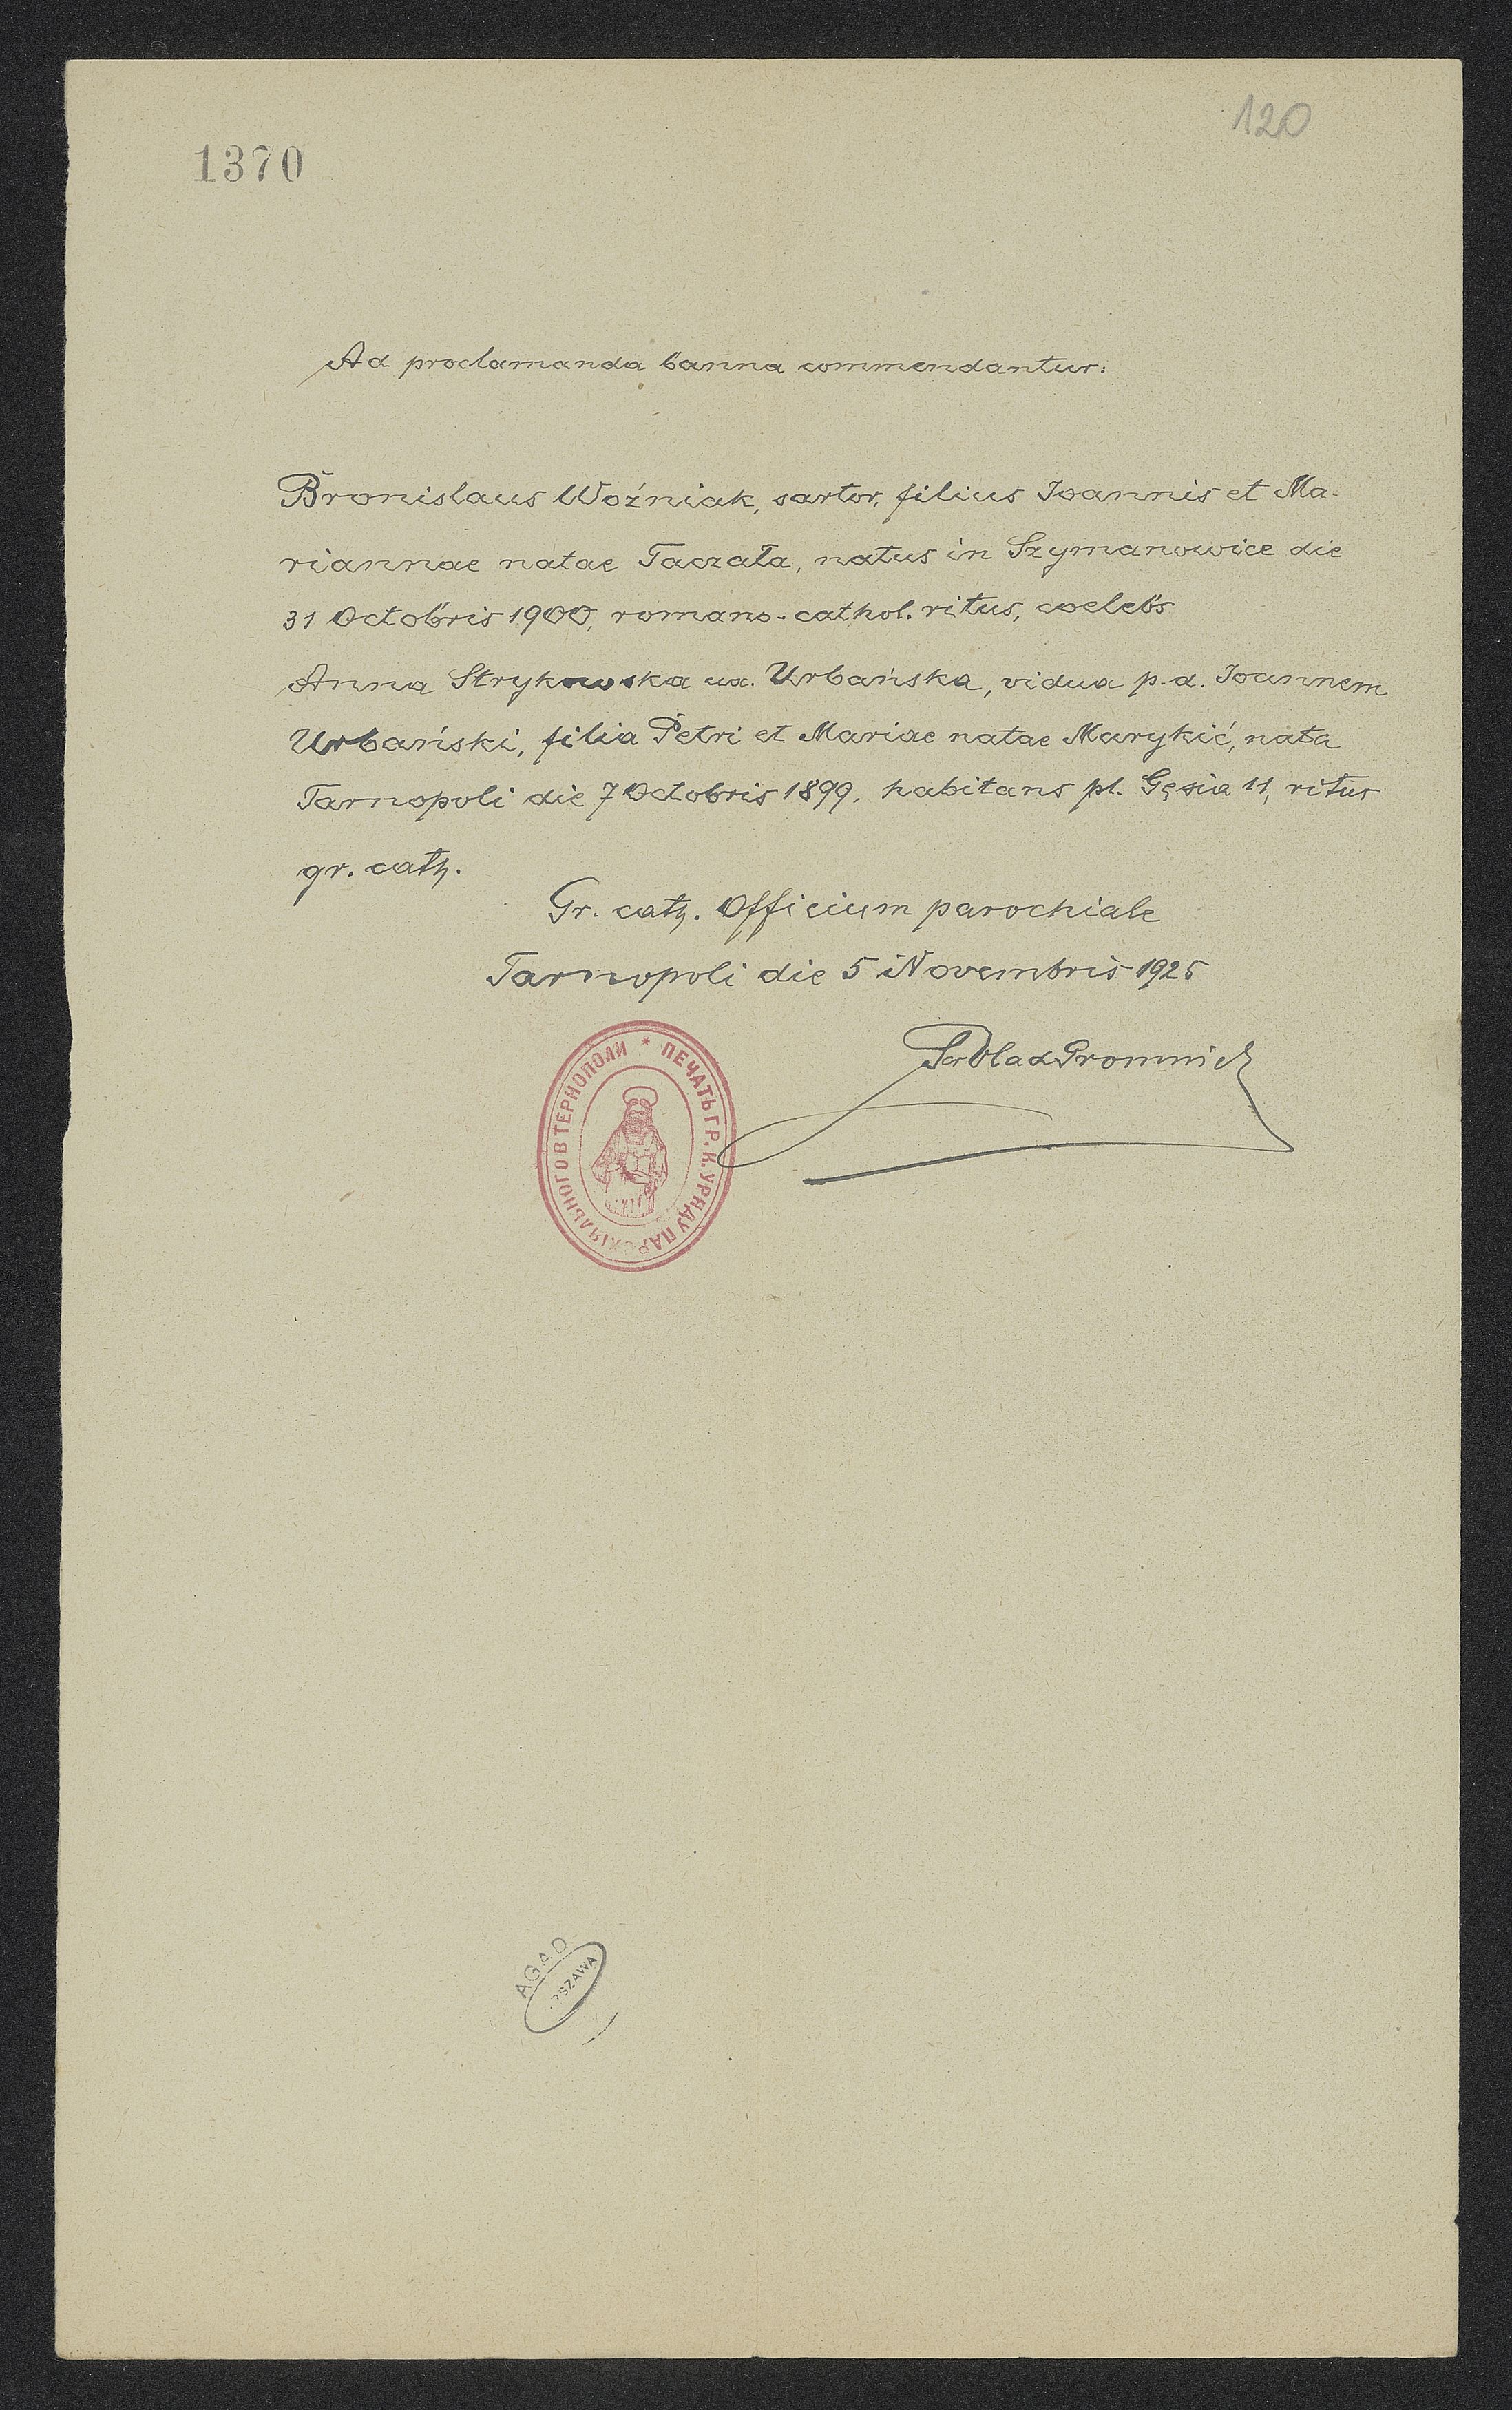 120
1370
Ad proclamanda banna commendantur:
Bronislaus Woźniak, sartor, filius Joannis et Ma-
riannae natae Taczała, natus in Szymanowice die
31 Octobris 1900, romano-cathol. ritus, coelebs
Anna Strykowska ux. Urbańska, vidua p. d. Joannem
Urbański, filia Petri et Mariae natae Marykić, nata
Tarnopoli die 7 Octobris 1899, habitans pl. Gęsia 11, ritus
gr. cath.
Gr. cath. Officium parochiale
Tarnopoli die 5 Novembris 1925
Gromnicki
ПЕЧАТЬ ГР. К. УРЯДУ ПАРОХІЯЛЬНОГО В ТЕРНОПОЛИ *
AGAD
RSZAWA